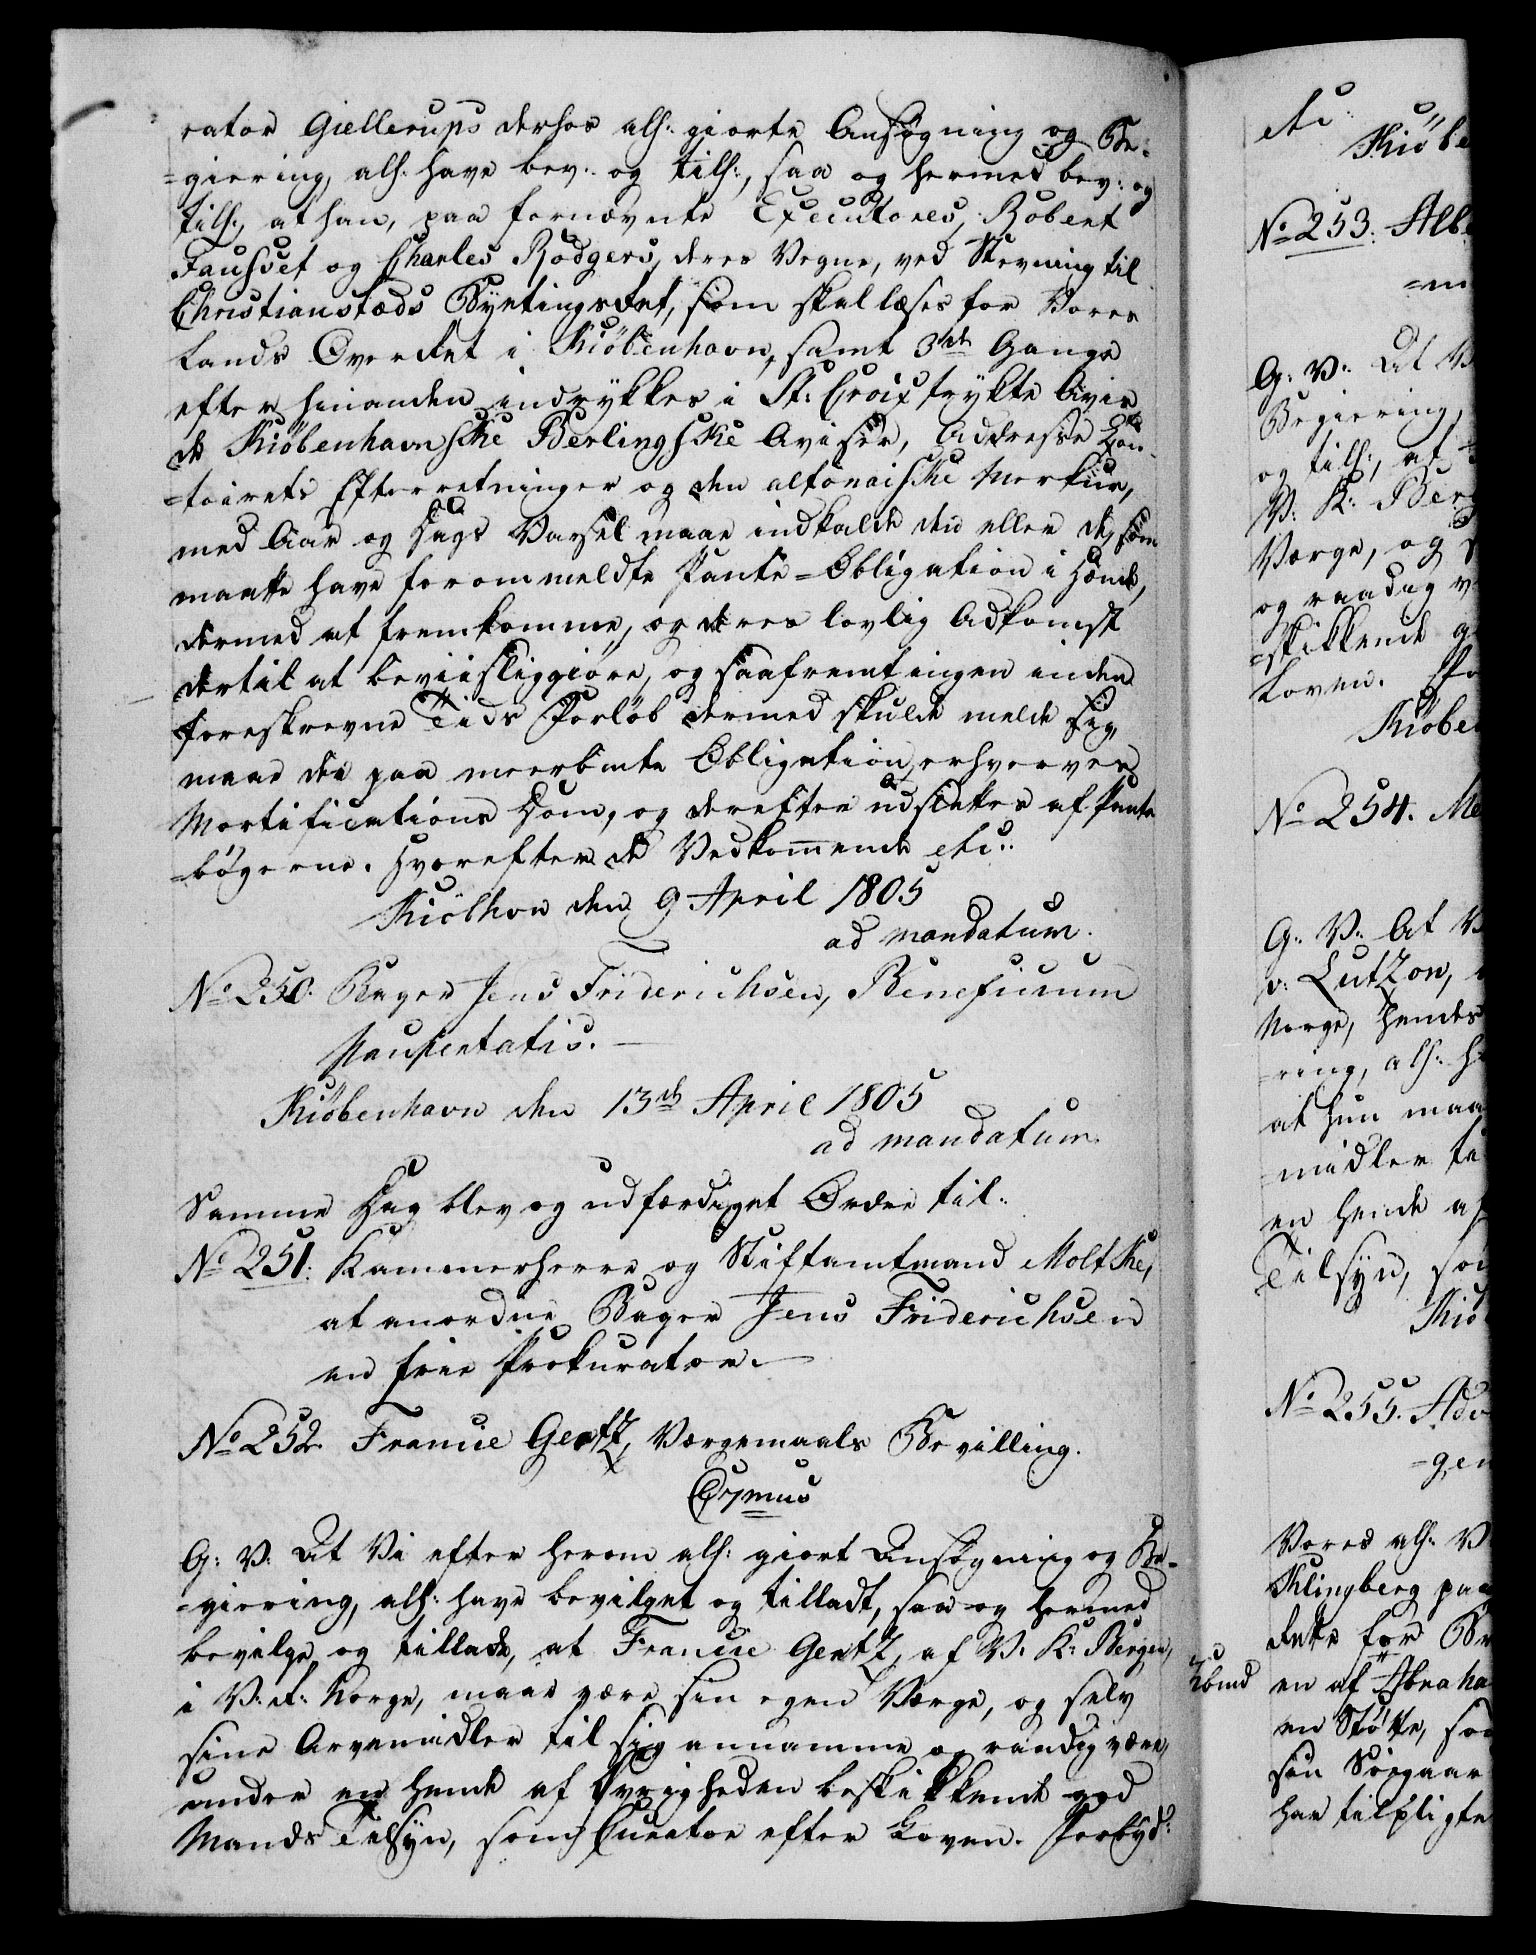 rator Giellerups derhos alh: giorte Ansøgning og Be-
=giering, alh: have bev: og tilh:, saa og hermed bev: og
tilh:, at han, paa fornævnte Executores, Robert
Fausset og Charles Rodgers, deres Vegne, ved Stevning til
Christianstæds Byetingsret, som skal læses for Vores
Lands Overret i Kiöbenhavn, samt 3de Gange
efter hinanden indrykkes i St: Croix trykte Avis
de Kiöbenhavnske Berlingske Aviser, Addresse Con-
=toirets Efterretninger og den altonaiske Merkur,
med Aar og Dags Varsel maae indkalde den eller de, som
maatte have forommeldte Pante=Obligation i Hænde,
dermed at fremkomme, og deres lovlig Adkomst
dertil at beviisliggiöre, og saafremt ingen inden
foreskrevne Tids Forlöb dermed skulde melde sig,
maae der paa meerbemte Obligation erhverves
Mortifications Dom, og derefter udslettes af Pante
=bögerne. Hvorefter de Vedkommende etc:
Kiöbhvn den 9 April 1805
ad mandatum.
No 250. Bager Jens Friderichsen, Beneficium
Paupertatis.
Kiöbenhavn den 13de April 1805
ad mandatum.
Samme Dag blev og udfærdiget Ordre til:
No 251: Kammerherre og Stiftamtmand Moltke,
at anordne Bager Jens Friderichsen
en frie Prokurator.
No 252. Francie Gertz, Værgemaals Bevilling.
G: V: At Vi efter herom alh: giort Ansøgning og Be-
=giering, alh: have bevilget og tilladt, saa og hermed
bevilge og tillade, at Francie Gertz, af V: K: Bergen,
i V: R: Norge, maae være sin egen Værge, og selv
sine Arvemidler til sig annamme og raadig være,
under en hende af Øvrigheden beskikkende god
Mands Tilsyn, som Curator efter Loven. Forbyd:
etc:
Kiöbe
No 253. Alb
=m
G: V: At V
Begiering,
og tilh:, at
V: K: Berg
Værge, og
og raadig v
=skikkende g
Loven. Fo
Kiöben
No 254. Me
G: V: At V
v: Lutzon,
Norge, hendes
=ring, alh: h
at hun maa
=midler ti
en hende af
Tilsyn, som
Kiöb
No 255. Adv
=gen
Vores alh: V
Klingberg paa
dets for Be
en af Abraha
en Stötte, som
sin Svigaar
har tilpligte